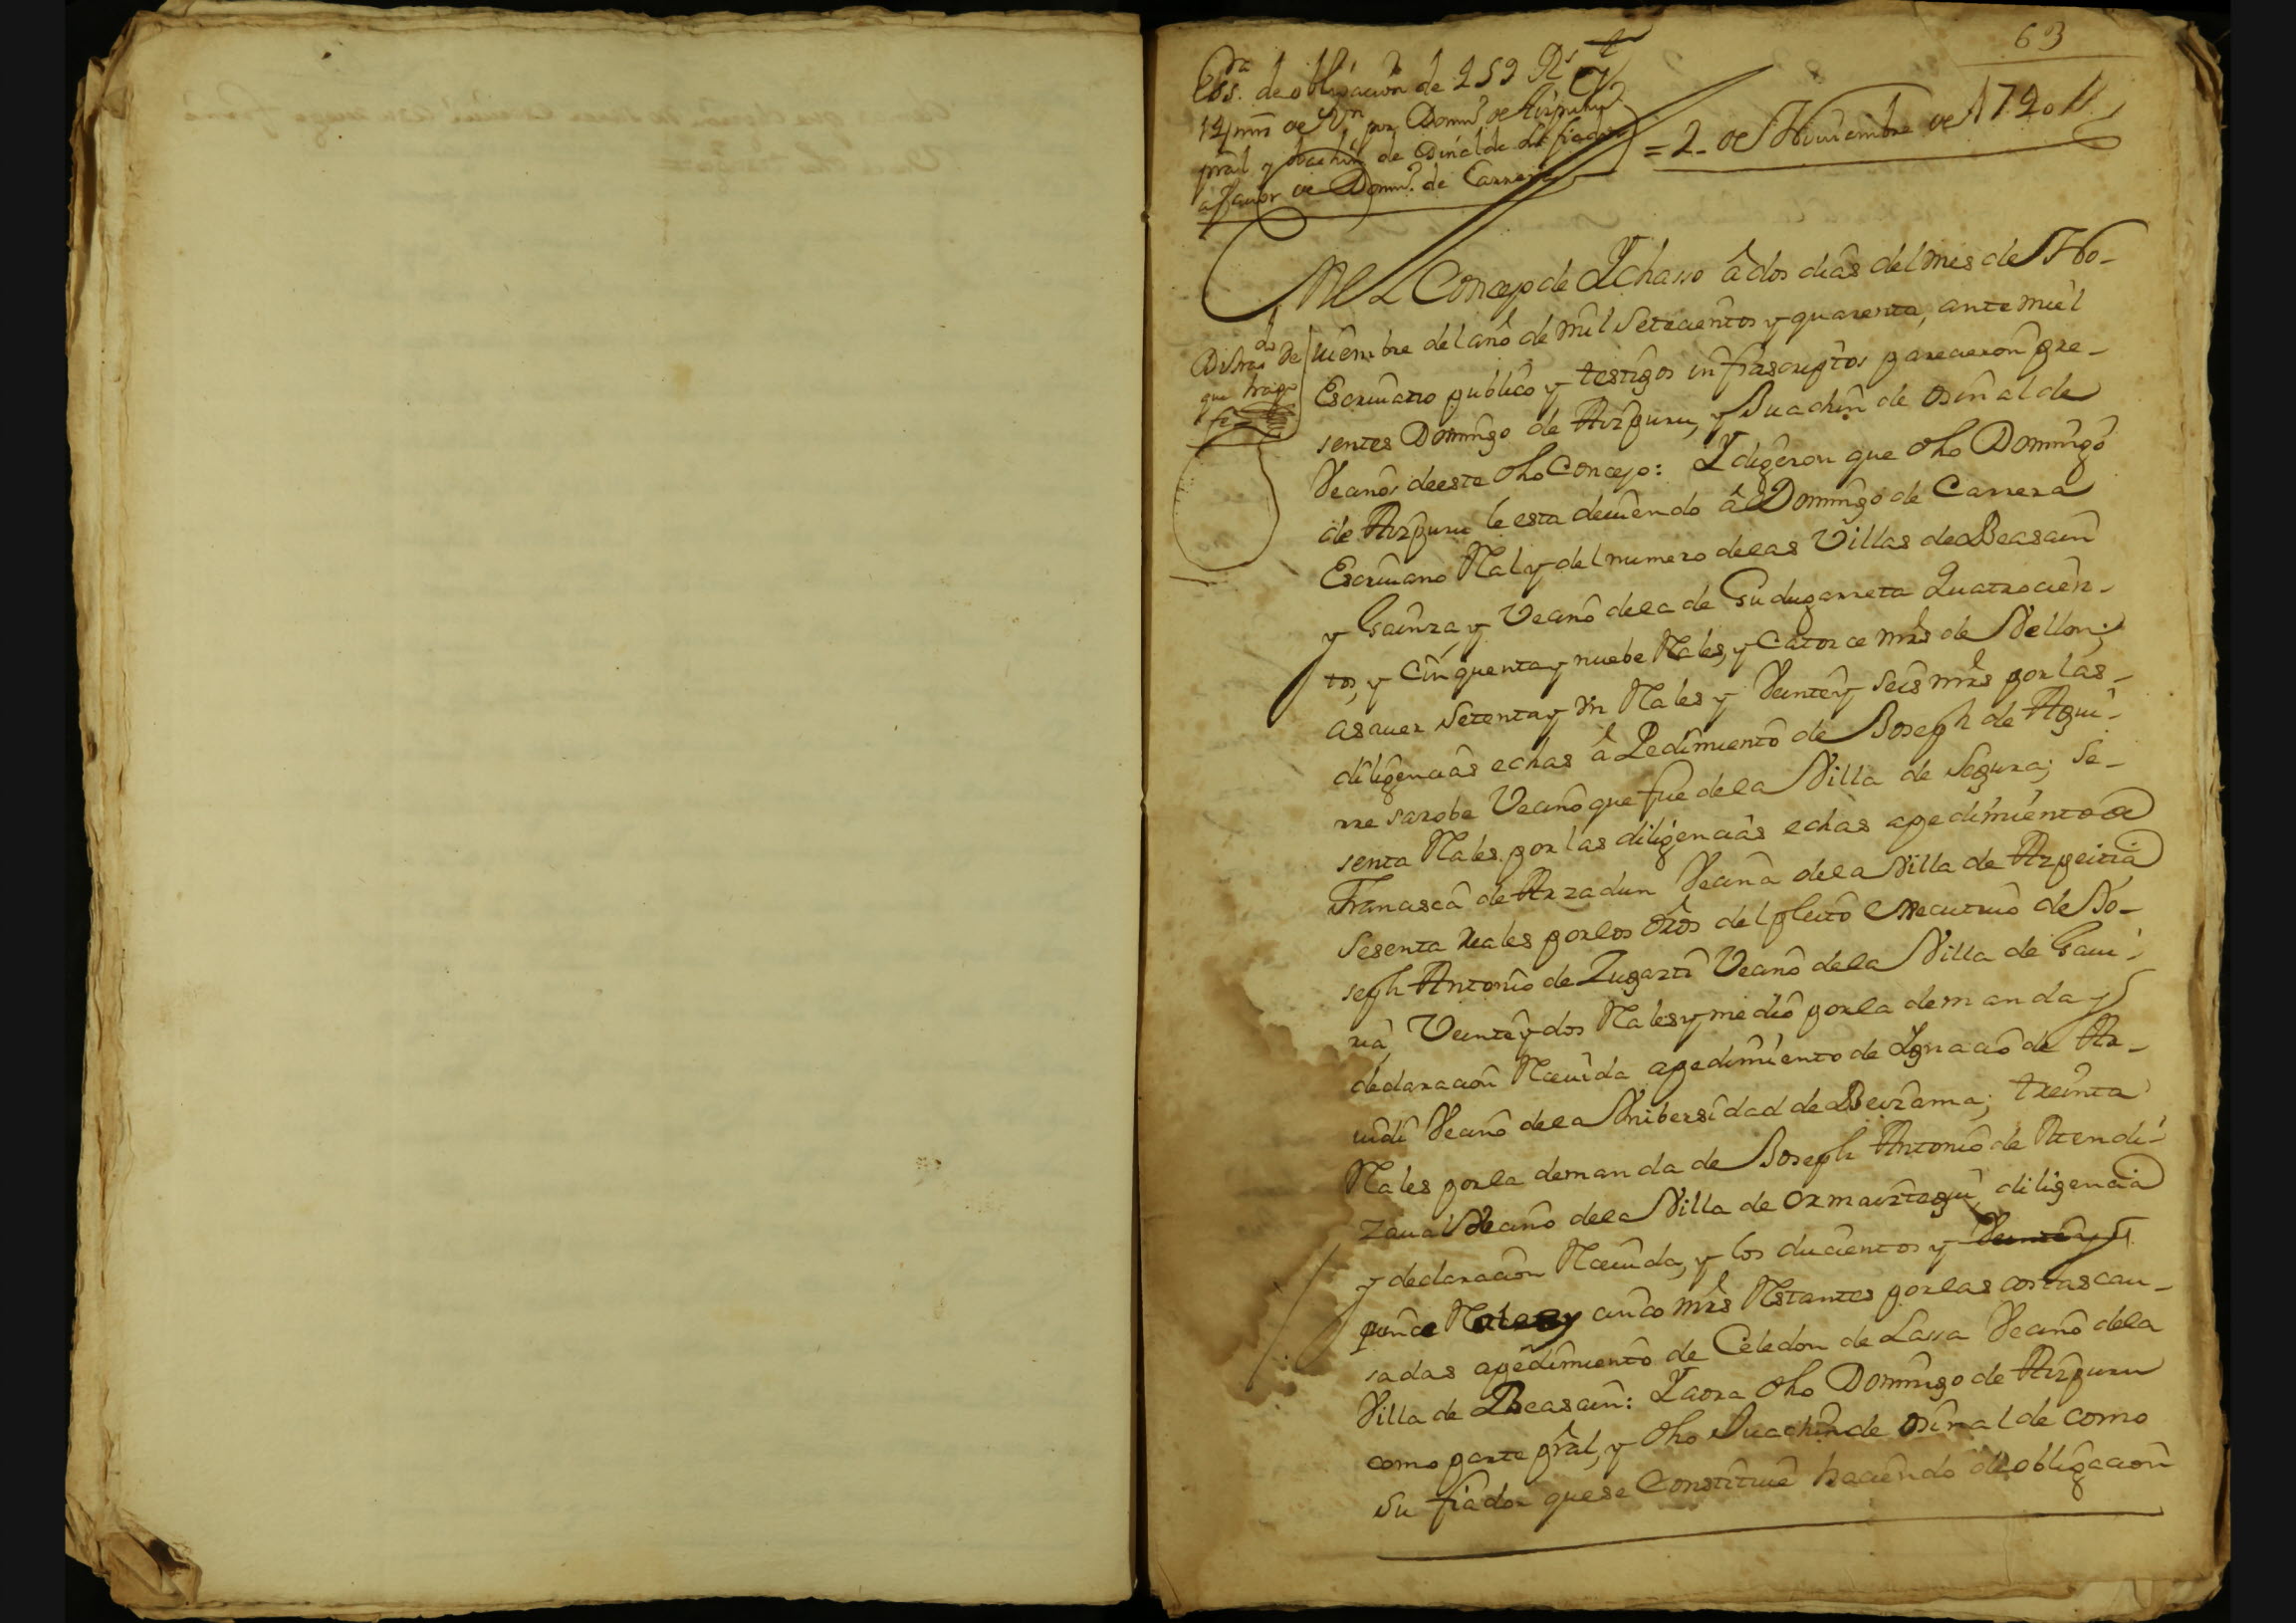 63
Essra. de obligacion de 459 Rs y
14 mrs de Vn por Domº de Aizpuru
pral y Juachin de Osinalde su fiador
a favor de Domº de Carrera
= 2 de Noviembre de 1740 //
En el Concejo de Ychasso â dos dias del mes de No-
viembre del año de mil setecientos y quarenta, ante mi el
Escrivano publico y testigos infrascriptos parecieron pre-
sentes Domingo de Aizpuru, y Juachin de Osinalde
Vecinos deeste dho Concejo: Y digeron que dho Domingo
de Aizpuru le esta deviendo â Domingo de Carrera
Escrivano Real y del numero delas Villas de Beasain
y Gainza, y Vecino dela de Gudugarreta Quatrocien-
tos, y Cinquenta y nuebe Rales, y Catorce mrs de Vellon;
asaver Setenta y un Rales y Veinte y seis mrs por las
diligencias echas â Pedimiento de Joseph de Agui-
rre sarobe Vecino que fue dela Villa de Segura; Se-
senta Rales por las diligencias echas apedimiento de
Francisca de Arzadun Vecina dela Villa de Azpeitia
Sesenta reales por los dros del pleito executivo de Jo-
seph Antonio de Zugarti Vecino dela Villa de Gavi-
ria, Veinte y dos Rales y medio por la demanda y
declaracion Recivida apedimiento de Ygnacio de Ar-
undi Vecino dela Unibersidad de Beizama; treinta
Rales por la demanda de Joseph Antonio de Atendi-
zaval Vecino dela Villa de Ormaiztegui, diligencia
y declaracion Recivida, y los ducientos y Veinte y
quince Rales y cinco mrs Restantes por las costas cau-
sadas apedimiento de Celedon de Lassa Vecino dela
Villa de Beasain: Y aora dho Domingo de Aizpuru
como parte pral, y dho Juachin de Osinalde como
su fiador que se Constituie haciendo de obligacion
que traigo
fe